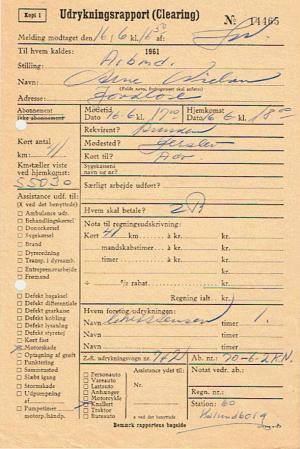 Kopi 1
Udrykningsrapport (Clearing)
Nº 14465
Melding modtaget den 16/6 kl. 16.50 af:
Til hvem kaldes: 1961
Stilling: Arbmd.
Navn: Arne Nielsen
(Fulde navn, forkortelser skal anføres)
Adresse:
Abonnement
ikke abonnement
Mødetid.
Dato 16-6 kl. 17.00
Hjemkomst
Dato 16-6 kl. 18.00
Rekvirent?
Kørt antal
km: 41
Mødested? Jerslev
Km-tæller viste
ved hjemkomst:
55030
Kørt til?
Sygekassens
navn og nr?
Særligt arbejde udført?
Assistance udf. til:
(X ud for det benyttede)
Ambulance udr.
Behandlingskørsel
Donorkørsel
Sygekørsel
Brand
Dyreredning
Transp. i dyreamb.
Entreprenørarbejde
Fremand
Hvem skal betale?
Nota til regningsudskrivning:
Kørt 41 km à kr. kr.
mandskabstimer à kr. kr.
timer à kr. kr.
÷ % rabat kr.
Regning ialt kr.
Defekt bagaksel
Defekt differentiale
Defekt gearkasse
Defekt kobling
Defekt lysanlæg
Defekt styretøj
Kørt fast
Motorskade
Optagning af grøft
Punktering
Sammenstød
Slæbt igang
Stormskade
Udpumpning
af
Pumpetimer
motorp./håndp.
Hvem foretog udrykningen:
Navn timer 1.
Navn timer
Z.-R. udrykningsvogn nr. 742
Ab. nr. 70-6-2 RN.
Personauto
Vareauto
Lastauto
Anhænger
Motorcykle
Knallert
Traktor
Ruteauto
Assistance ydet til
Nr.
a ved det benyttede
Notat vedr. ab.
Regn. nr.
Station: 60
Kalundborg
Bemærk rapportens bagside